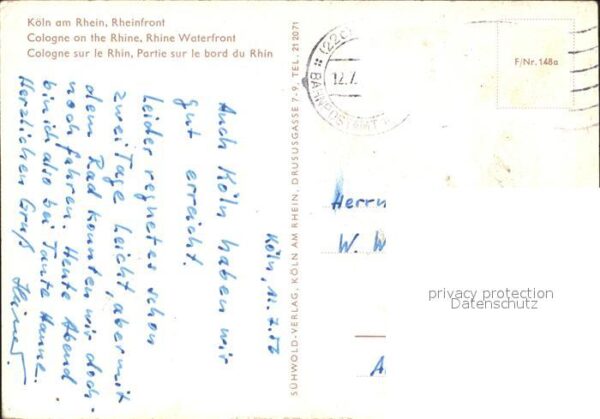 Köln am Rhein, Rheinfront
Cologne on the Rhine, Rhine Waterfront
Cologne sur le Rhin, Partie sur le bord du Rhin
Köln, 11.7.56
Auch Köln haben wir
gut erreicht.
Leider regnet es schon
zwei Tage leicht, aber mit
dem Rad konnten wir doch
noch fahren. Heute Abend
bin ich also bei Tante Hanne.
Herzlichen Gruß
SÜHWOLD-VERLAG, KÖLN AM RHEIN, DRUSUSGASSE 7-9, TEL. 212071
(22c)
BAHNPOSTAMT
12.7.
F/Nr. 148a
Herrn
W. W
privacy protection
Datenschutz
A